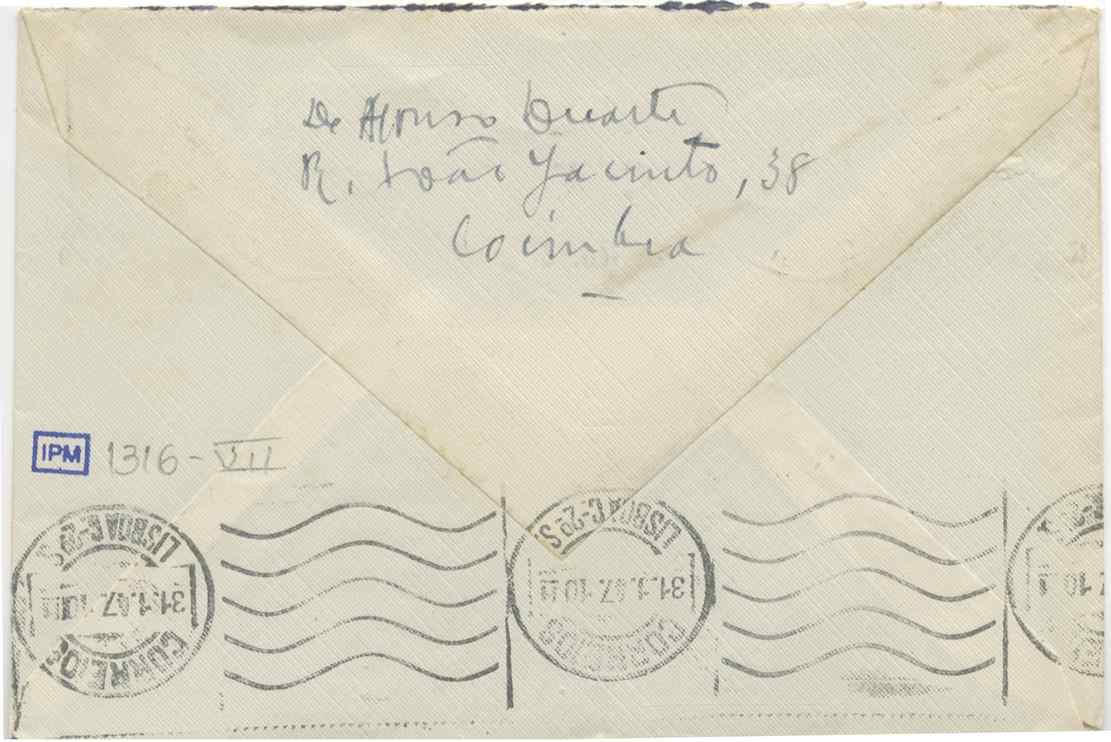 De Afonso Duarte
R. João Jacinto, 38
Coimbra
IPM 1316-VII
LISBOA C-2ª S.
31.1.47.10
CORREIOS
LISBOA C-2ª S.
31.1.47.10
CORREIOS